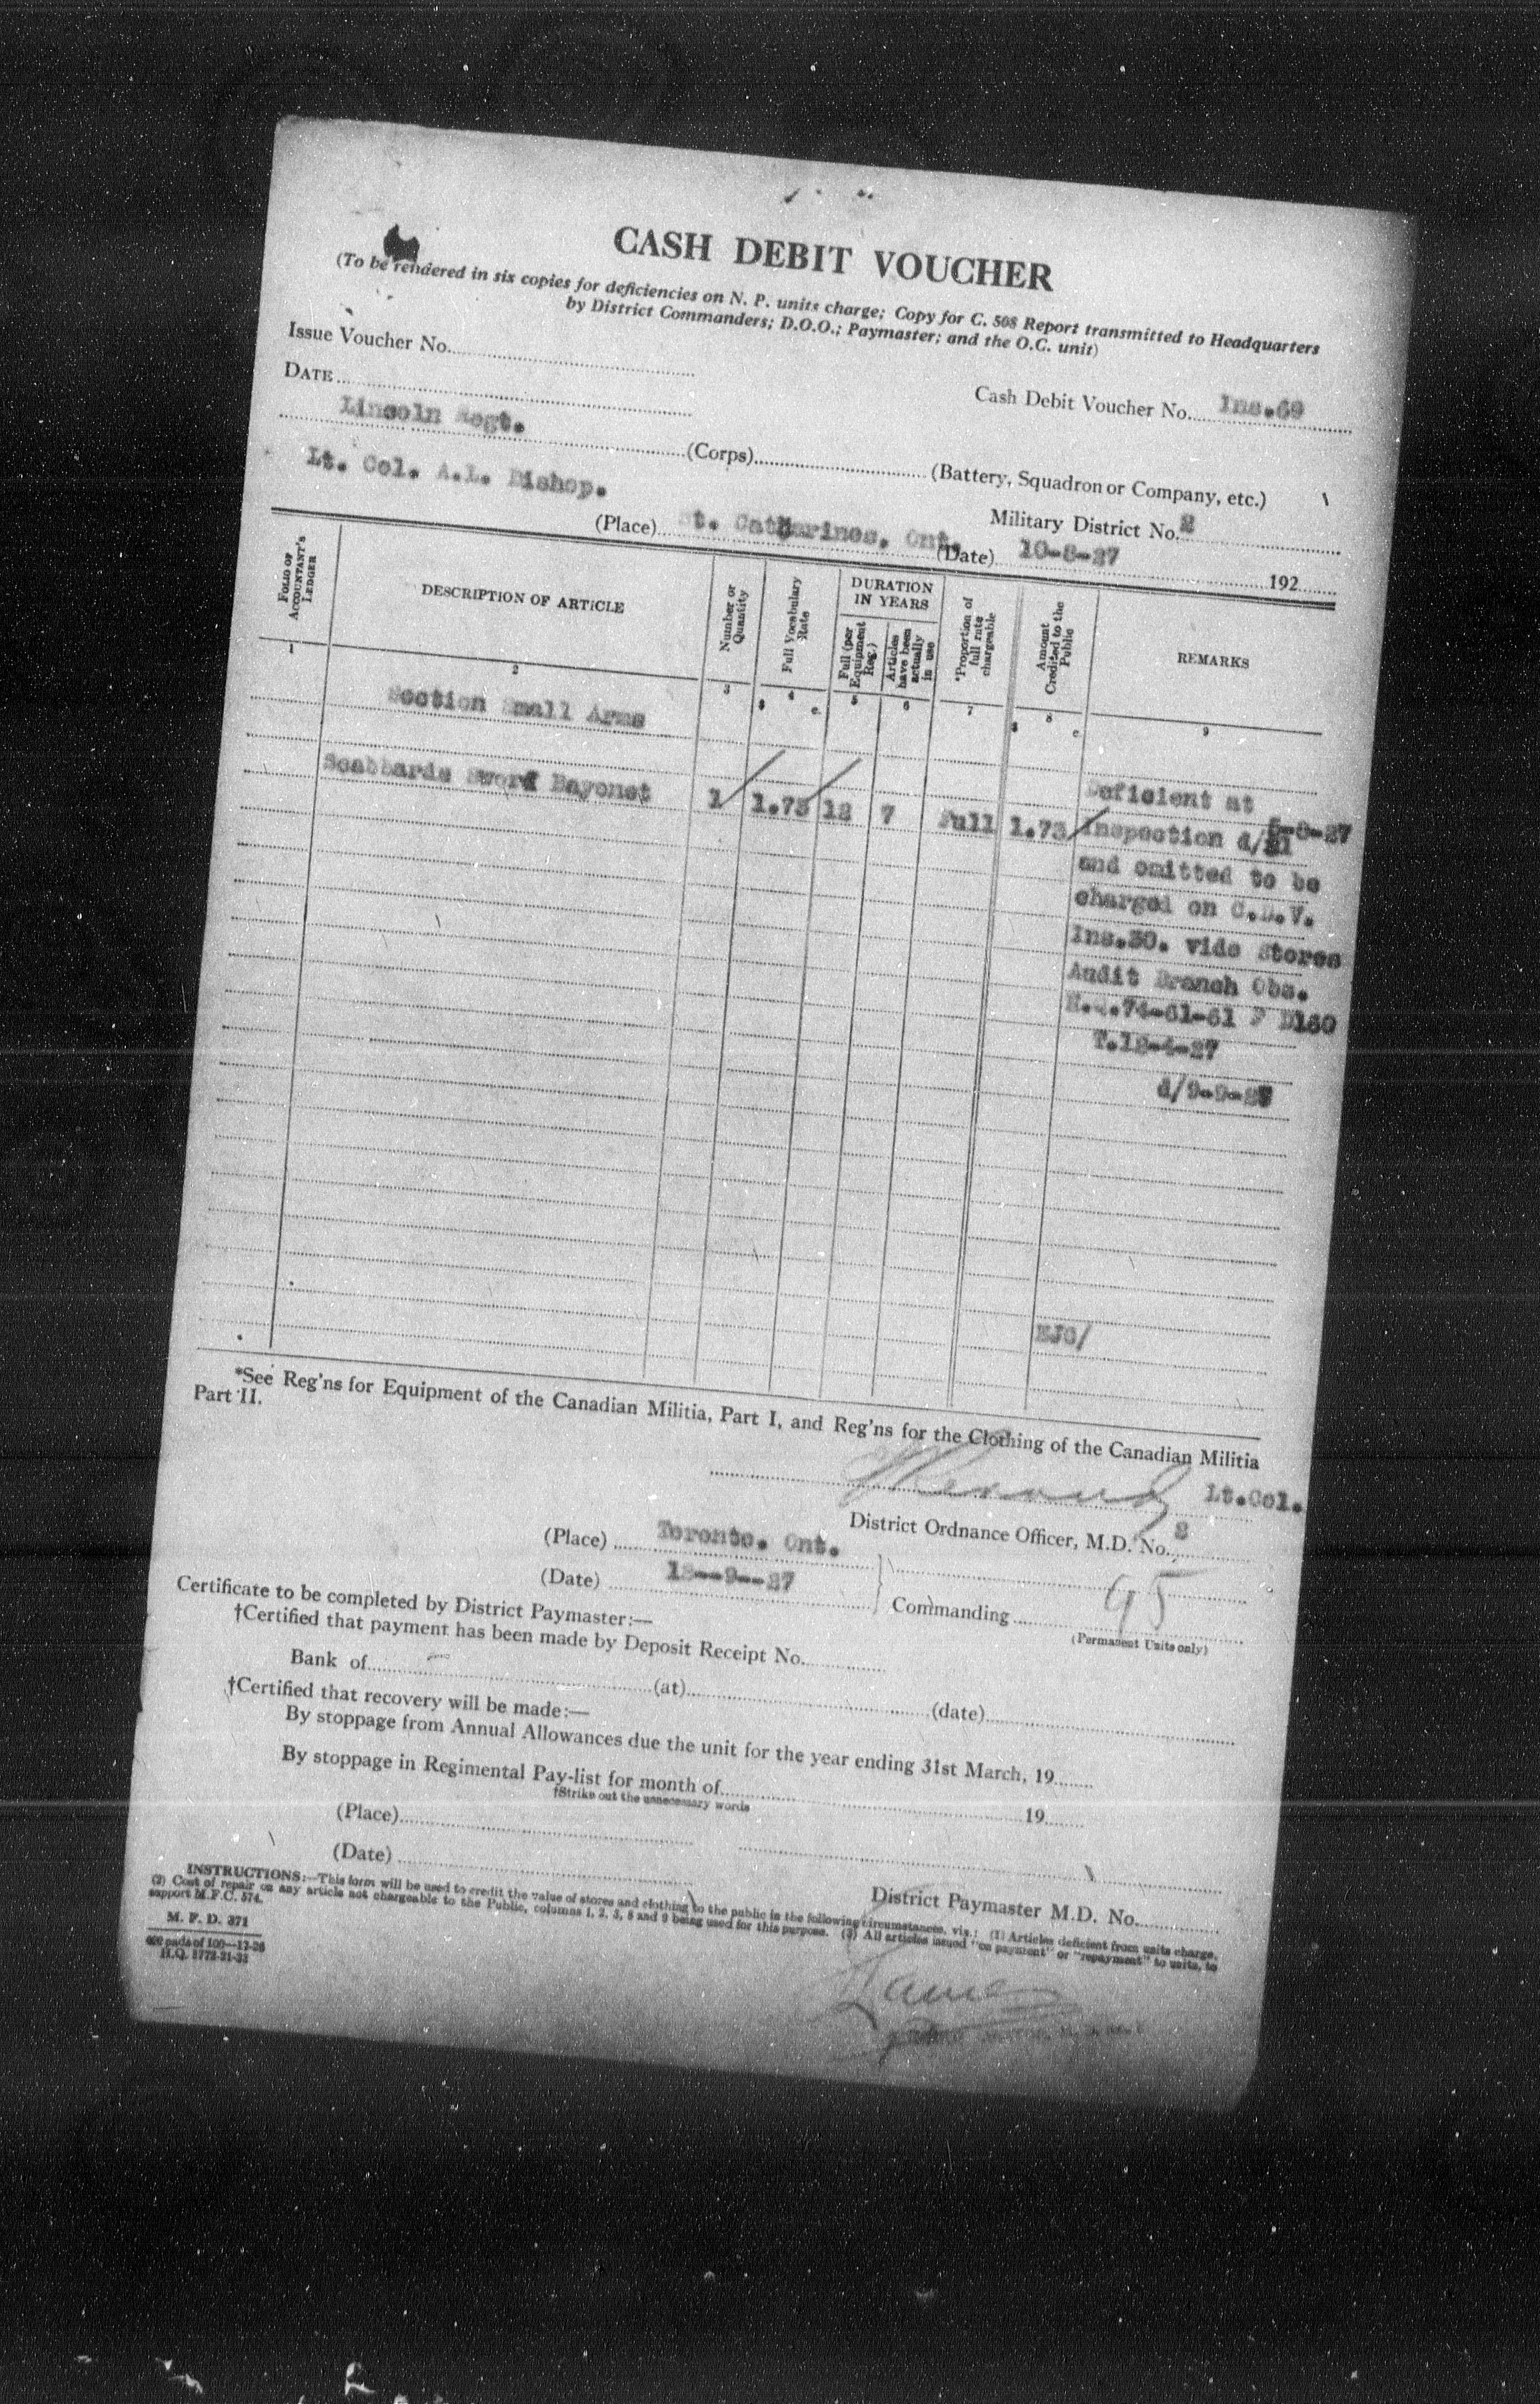 CASH DEBIT VOUCHER
(To be rendered in six copies for deficiencies on N. P. units charge; Copy for C. 508 Report transmitted to Headquarters
by District Commanders; D.O.O.; Paymaster; and the O.C. unit)
Issue Voucher No.
DATE
Cash Debit Voucher No. Ins.69
Lincoln Regt. (Corps) (Battery, Squadron or Company, etc.)
Lt. Col. A.L. Bishop. Military District No. 2
(Place) St. Catharines, Ont. (Date) 10-8-27 192
FOLIO OF ACCOUNTANT'S LEDGER
DESCRIPTION OF ARTICLE
Number or Quantity
Full Vocabulary Rate
DURATION IN YEARS
Full (per Equipment Reg.)
Articles have been actually in use
*Proportion of full rate chargeable
Amount Credited to the Public
REMARKS
1 2 3 4 5 6 7 8 9
$ c. $ c.
Section Small Arms
Scabbards Sword Bayonet 1 1.73 12 7 Full 1.73
Deficient at
5-8-27
Inspection d/
and omitted to be
charged on C.D.V.
Ins.30. vide Stores
Audit Branch Obs.
H.Q.74-61-61 F D160
T.12-4-27
d/9-9-27
EJG/
*See Reg'ns for Equipment of the Canadian Militia, Part I, and Reg'ns for the Clothing of the Canadian Militia
Part II.
Lt.Col.
District Ordnance Officer, M.D. No. 2
(Place) Toronto. Ont.
(Date) 13--9--27
Commanding 95
(Permanent Units only)
Certificate to be completed by District Paymaster:—
†Certified that payment has been made by Deposit Receipt No.
Bank of (at) (date)
†Certified that recovery will be made:—
By stoppage from Annual Allowances due the unit for the year ending 31st March, 19
By stoppage in Regimental Pay-list for month of 19
†Strike out the unnecessary words
(Place)
(Date)
District Paymaster M.D. No.
INSTRUCTIONS:—This form will be used to credit the value of stores and clothing to the public in the following circumstances, viz.: (1) Articles deficient from units charge.
(2) Cost of repair on any article not chargeable to the Public, columns 1, 2, 3, 8 and 9 being used for this purpose. (3) All articles issued "on payment" or "repayment" to units, to
support M.F.C. 574.
M. F. D. 371
pads of 100—12-26
H.Q. 1772-31-33